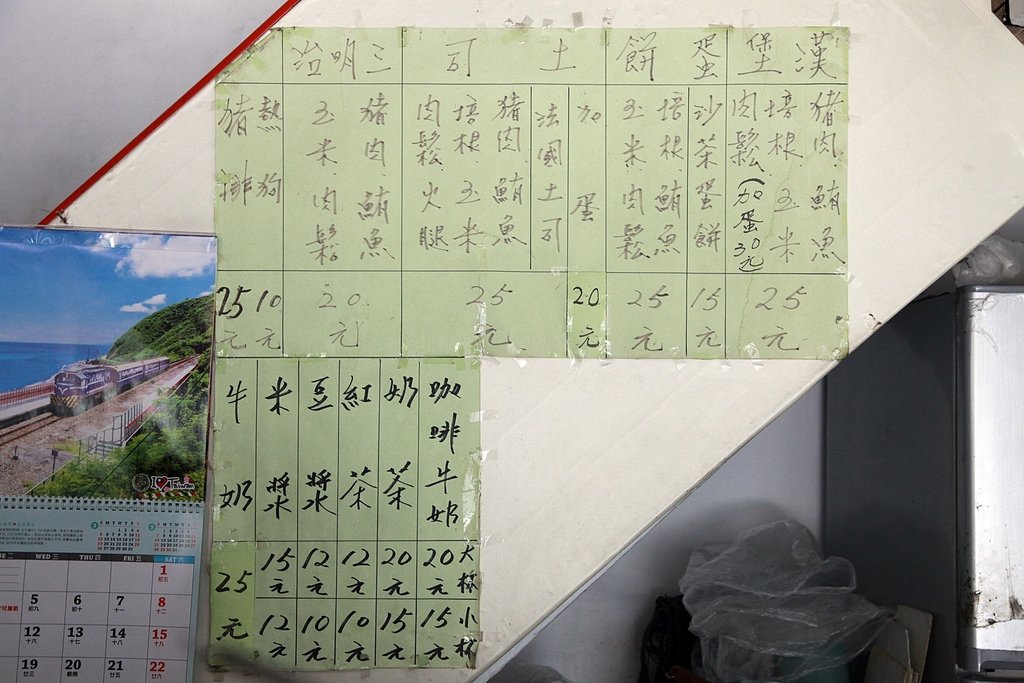 漢堡
猪肉 鮪魚
培根 玉米
肉鬆(加蛋30元)
25元
蛋餅
沙茶蛋餅
15元
培根 鮪魚
玉米 肉鬆
25元
加蛋
20元
土司
法國土司
猪肉 鮪魚
培根 玉米
肉鬆 火腿
25元
三明治
猪肉 鮪魚
玉米 肉鬆
20元
熱狗
10元
猪排
25元
咖啡牛奶
大杯
20元
小杯
15元
奶茶
20元
15元
紅茶
12元
10元
豆漿
12元
10元
米漿
15元
12元
牛奶
25元
I Taiwan
WED 三 THU 四 FRI 五 SAT 六
1
初五
5 6 7 8
初九 初十 十一 十二
12 13 14 15
十六 十七 十八 十九
19 20 21 22
廿三 穀雨 廿五 廿六